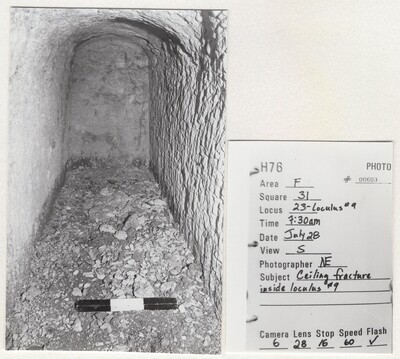 H76 PHOTO
# 00603
Area F
Square 31
Locus 23-Loculus #9
Time 7:30am
Date July 28
View S
Photographer NE
Subject Ceiling fracture
inside loculus #9
Camera Lens Stop Speed Flash
6 28 16 60 ✓